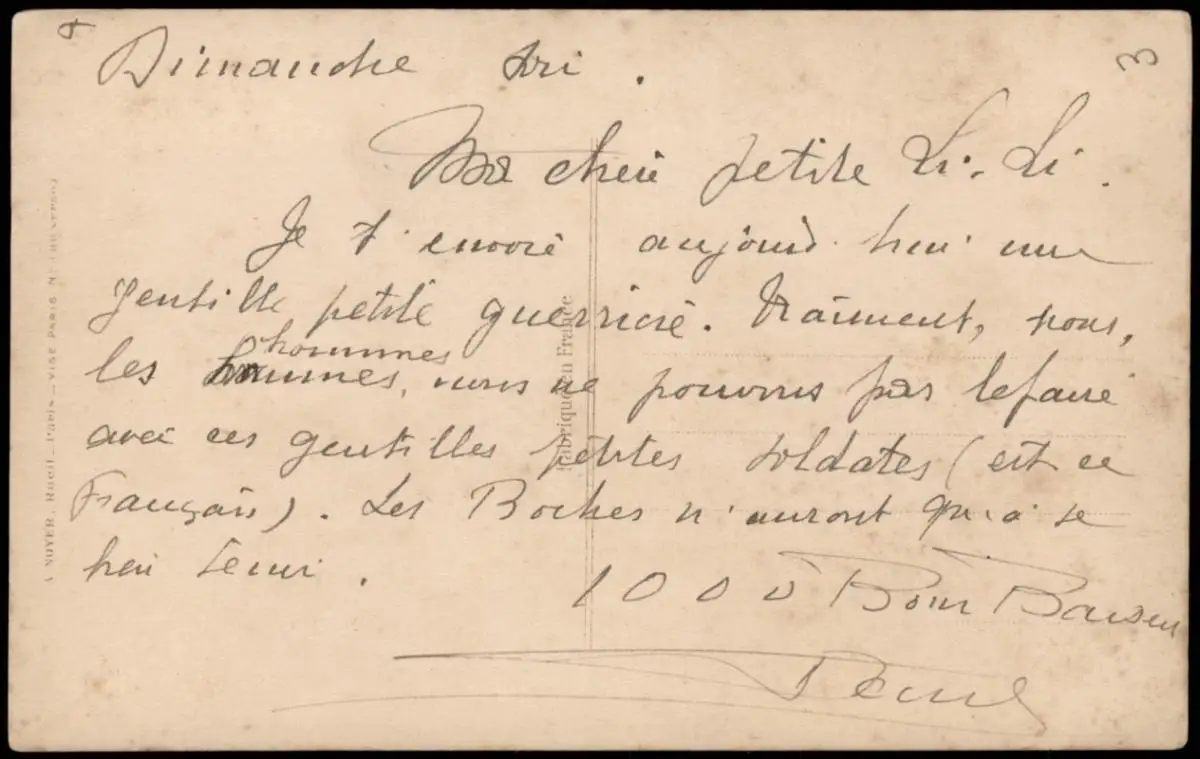 3
Dimanche soir.
Ma chère petite Li-Li.
Je t'envoie aujourd'hui une
gentille petite guerrière. Vraiment, nous,
les hommes
hommes, nous ne pouvons pas le faire
avec ces gentilles petites soldates (est ce
Français). Les Boches n'auront qu'à se
bien tenir.
1000 Bons Baisers
A. NOYER, Rueil_Paris_VISÉ PARIS
Fabriqué en France